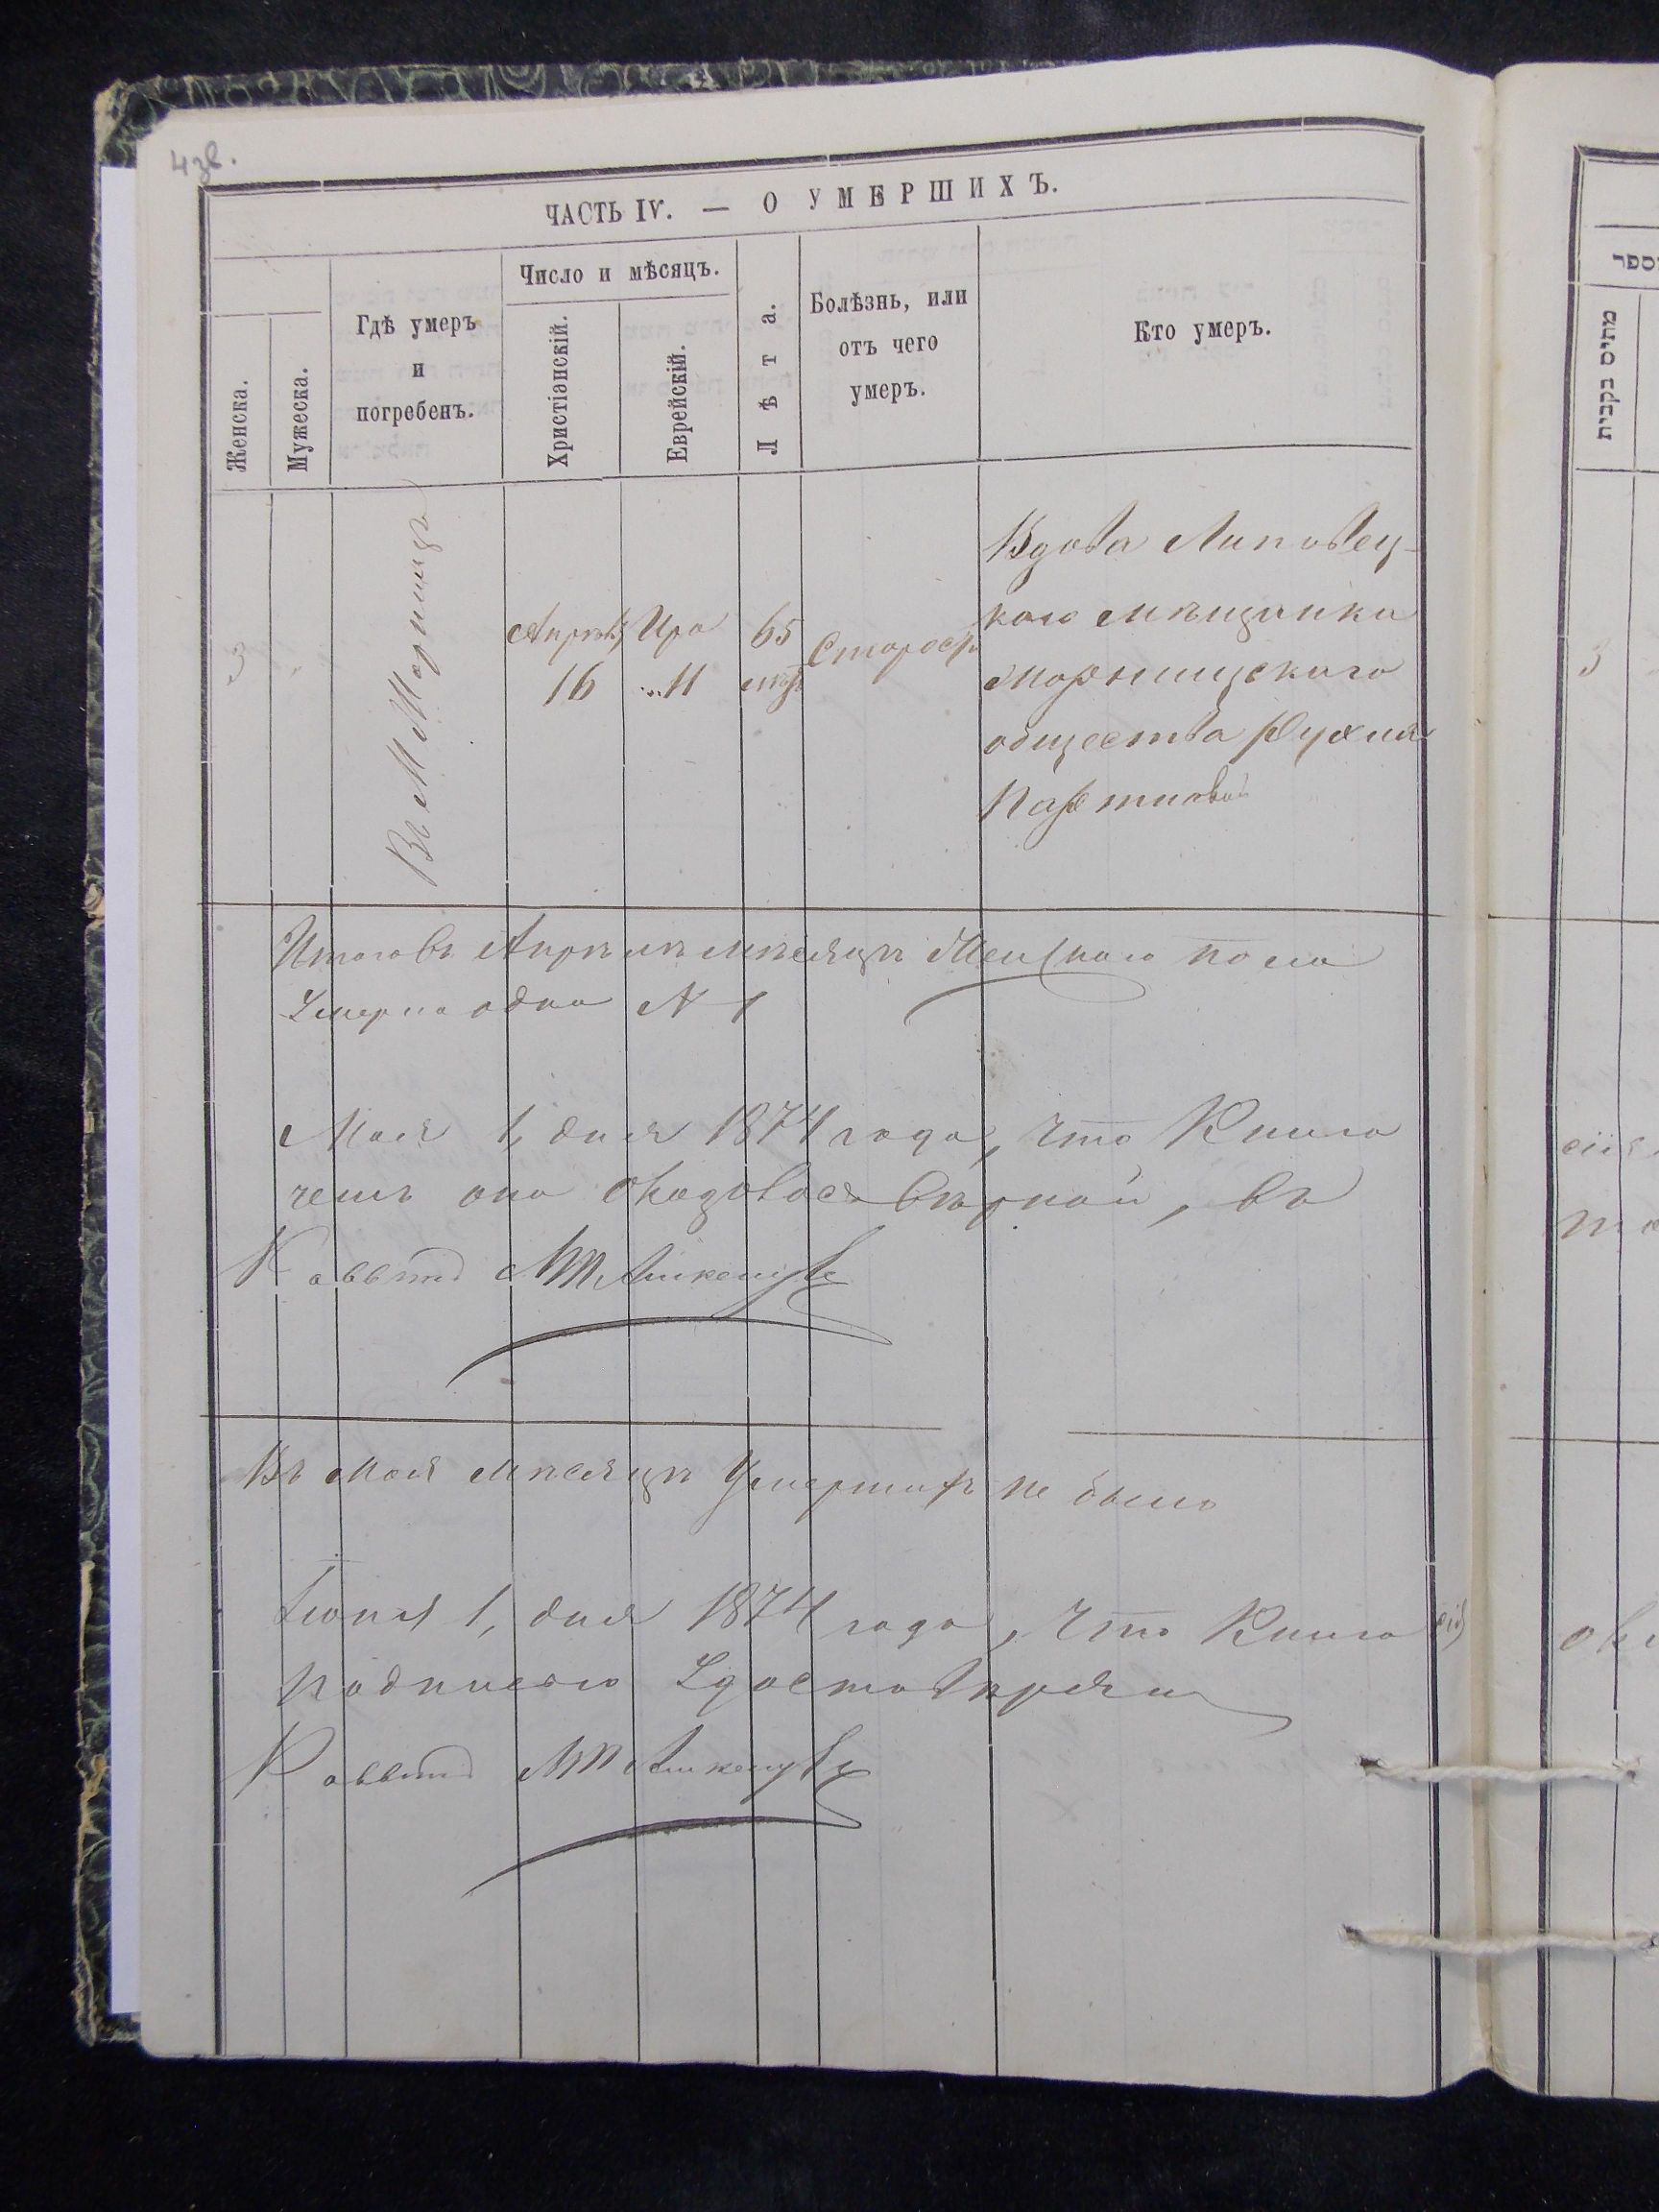 4зв.
ЧАСТЬ IV. — О УМЕРШИХЪ.
Женска.
Мужеска.
Гдѣ умеръ
и
погребенъ.
Число и мѣсяцъ.
Христіанскій.
Еврейскій.
Лѣта.
Болѣзнь, или
отъ чего
умеръ.
Кто умеръ.
3
Въ М
Апрѣль
16
Ира
11
65
Старость
Вдова Липовец-
каго мѣщанина
общества Рухля
Итого въ Апрѣлѣ мѣсяцѣ Женскаго пола
Умерла одна N 1
Мая 1, дня 1874 года, что Книга
чемъ она оказалась вѣрной, въ
Раввинъ
Въ Мая мѣсяцѣ Умершихъ не было
Іюня 1, дня 1874 года, что Книга сія
подписью Удостовѣряю
Раввинъ
מספר
3
сія